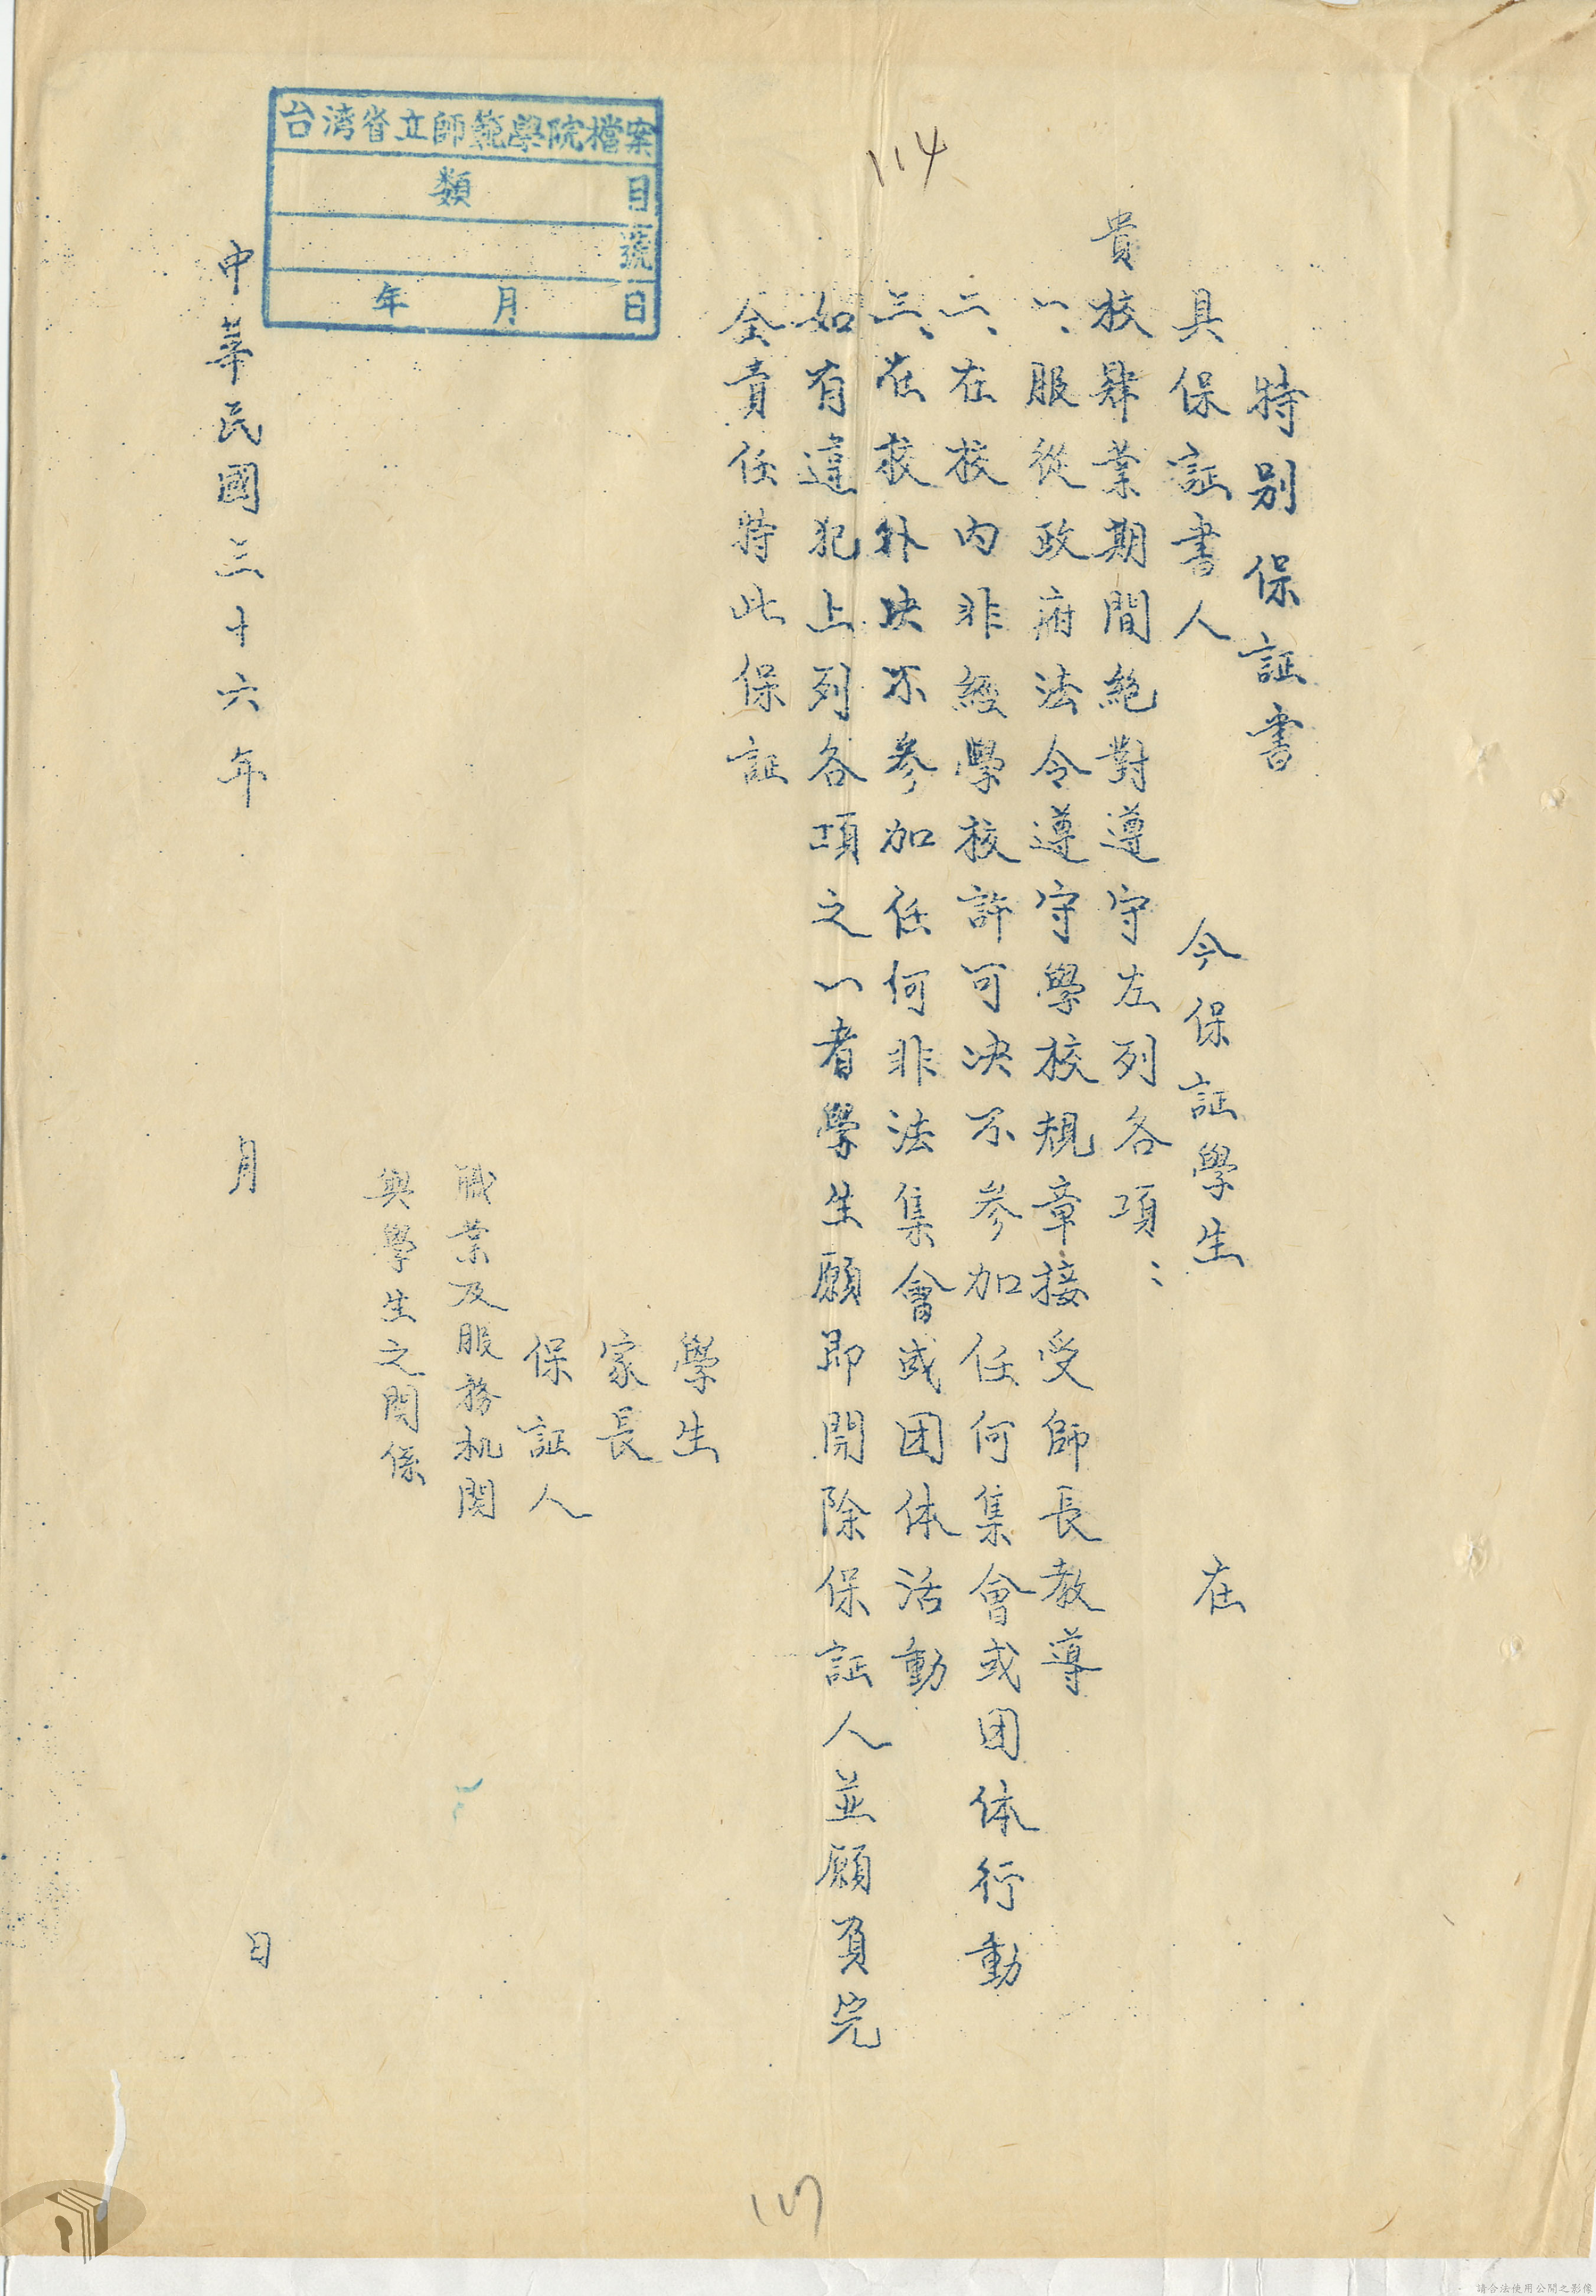 114
特別保証書
具保証書人　今保証學生　在
貴校肄業期間絶對遵守左列各項：
一、服從政府法令遵守學校規章接受師長教導
二、在校內非經學校許可決不参加任何集會或团体行動
三、在校外决不参加任何非法集會或团体活動
如有違犯上列各項之一者學生願即開除保証人並願負完
全責任特此保証
學生
家長
保証人
職業及服務机関
與學生之関係
中華民國三十六年　月　日
台湾省立師範學院檔案
類　目
號
年　月　日
請合法使用公開之影像